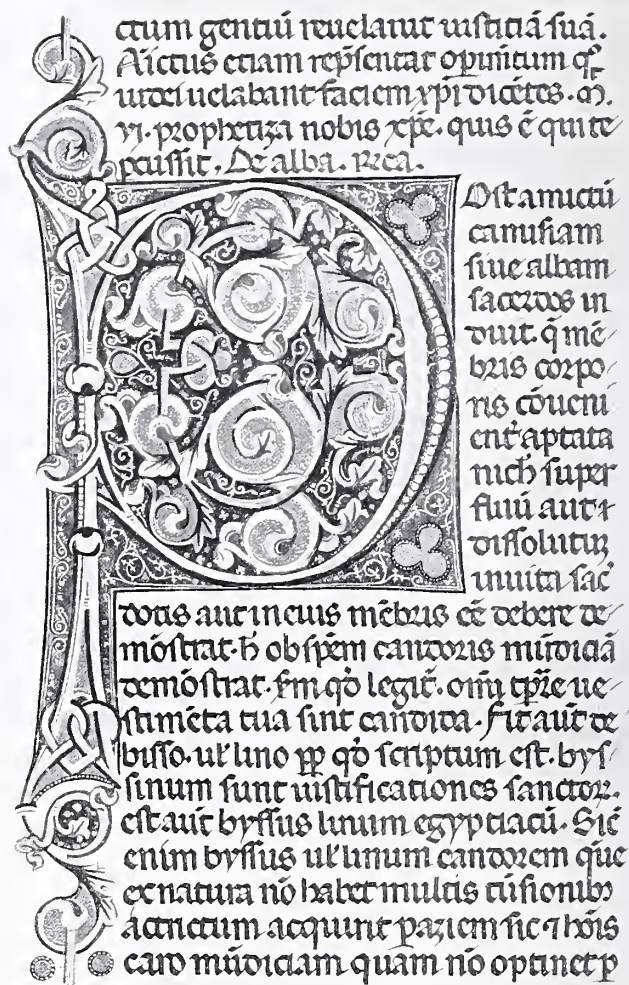 ctum gentiū reuelauit iusticiā suā.
Amictus etiam rep̄sentat opimitum q̄
iudei uelabant faciem xp̄i dicētes. M.
vi. prophetiza nobis xp̄e. quis ē qui te
pcussit. De alba. Rica.
Post amictū
camisiam
siue albam
sacerdos in
duit. q̄ mē
bris corpo
ris cōueni
ent̄ aptata
nich̄ super
fluū aut ⁊
dissolutuꝫ
in uita sac̄
dotis aut in eius mēbris eē debere de
mōstrat. h̄ ob sp̄em candoris mūdiciā
demōstrat. s̄m qd̄ legit̄. omī tp̄re ue
stimēta tua sint candida. Fit aut̄ de
bisso. ul̄ lino pp̄ qd̄ scriptum est. bys
sinum sunt iustificationes sanctoꝝ.
est aut̄ byssus linum egyptiacū. Sic̄
enim byssus ul̄ linum candorem quē
ex natura nō habet multis tūsionibꝫ
actrictum acquirit p̱ aziem sic ⁊ hōis
caro mūdiciam quam nō optinet p̱